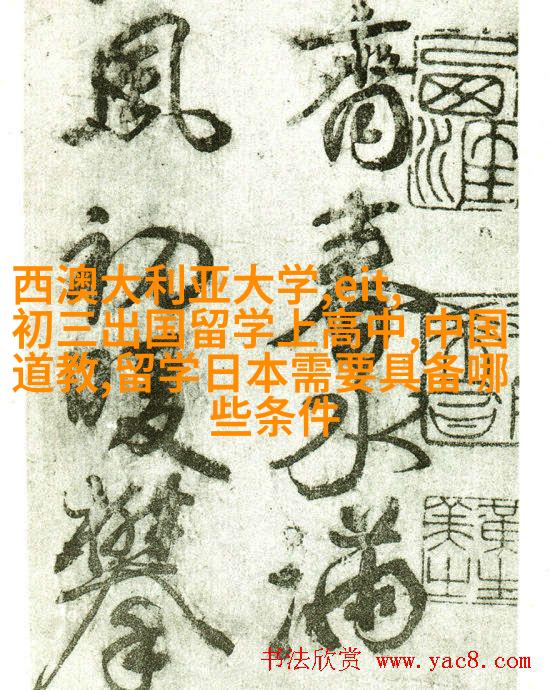 春水滿
風初暖攀
西澳大利亚大学,eit,
初三出国留学上高中,中国
道教,留学日本需要具备哪
些条件
书法欣赏 www.yac8.com